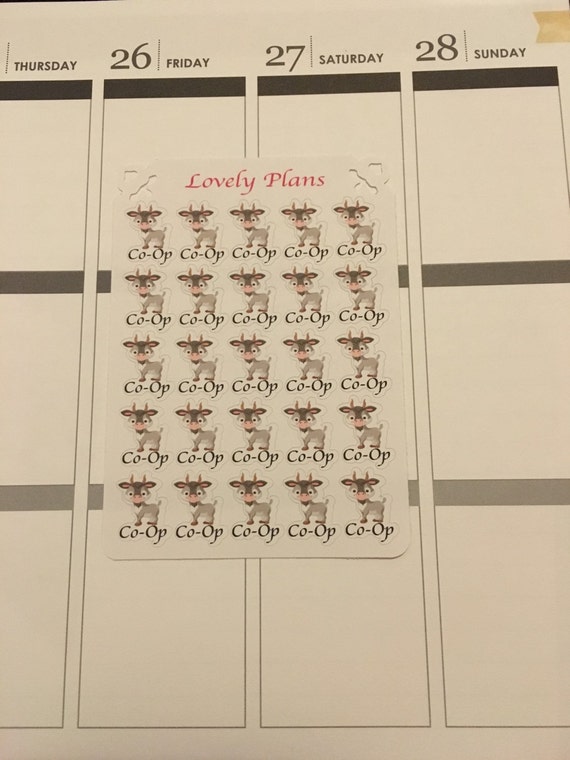 THURSDAY 26 FRIDAY 27 SATURDAY 28 SUNDAY
Lovely Plans
Co-Op Co-Op Co-Op Co-Op Co-Op
Co-Op Co-Op Co-Op Co-Op Co-Op
Co-Op Co-Op Co-Op Co-Op Co-Op
Co-Op Co-Op Co-Op Co-Op Co-Op
Co-Op Co-Op Co-Op Co-Op Co-Op